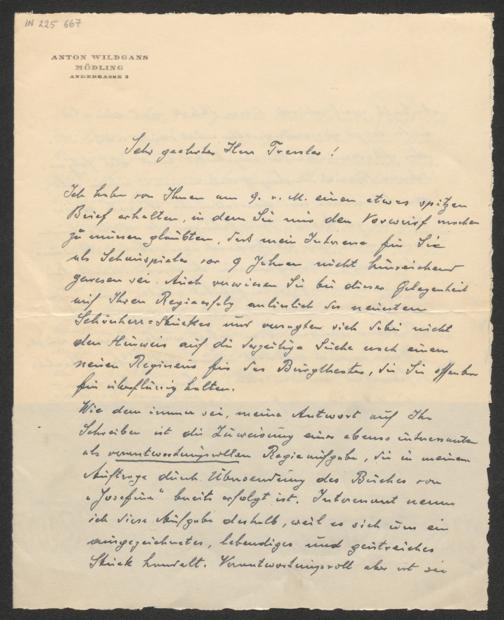 IN 225 667
ANTON WILDGANS
MÖDLING
ANDERGASSE 3
Sehr geehrter Herr Tressler!
Ich habe von Ihnen am 9. v. M. einen etwas spitzen
Brief erhalten, in dem Sie mir den Vorwurf machen
zu müssen glaubten, dass mein Interesse für Sie
als Schauspieler vor 9 Jahren nicht hinreichend
gewesen sei. Auch verwiesen Sie bei dieser Gelegenheit
auf Ihren Regieerfolg anlässlich des neuesten
Schönherr-Stückes und versagten sich dabei nicht
den Hinweis auf die derzeitige Suche nach einem
neuen Regisseur für das Burgtheater, die Sie offenbar
für überflüssig halten.
Wie dem immer sei, meine Antwort auf Ihr
Schreiben ist die Zuweisung einer ebenso interessanten
als verantwortungsvollen Regieaufgabe, die in meinem
Auftrage durch Übersendung des Buches von
„Josefine" bereits erfolgt ist. Interessant nenne
ich diese Aufgabe deshalb, weil es sich um ein
ausgezeichnetes, lebendiges und geistreiches
Stück handelt. Verantwortungsvoll aber ist sie